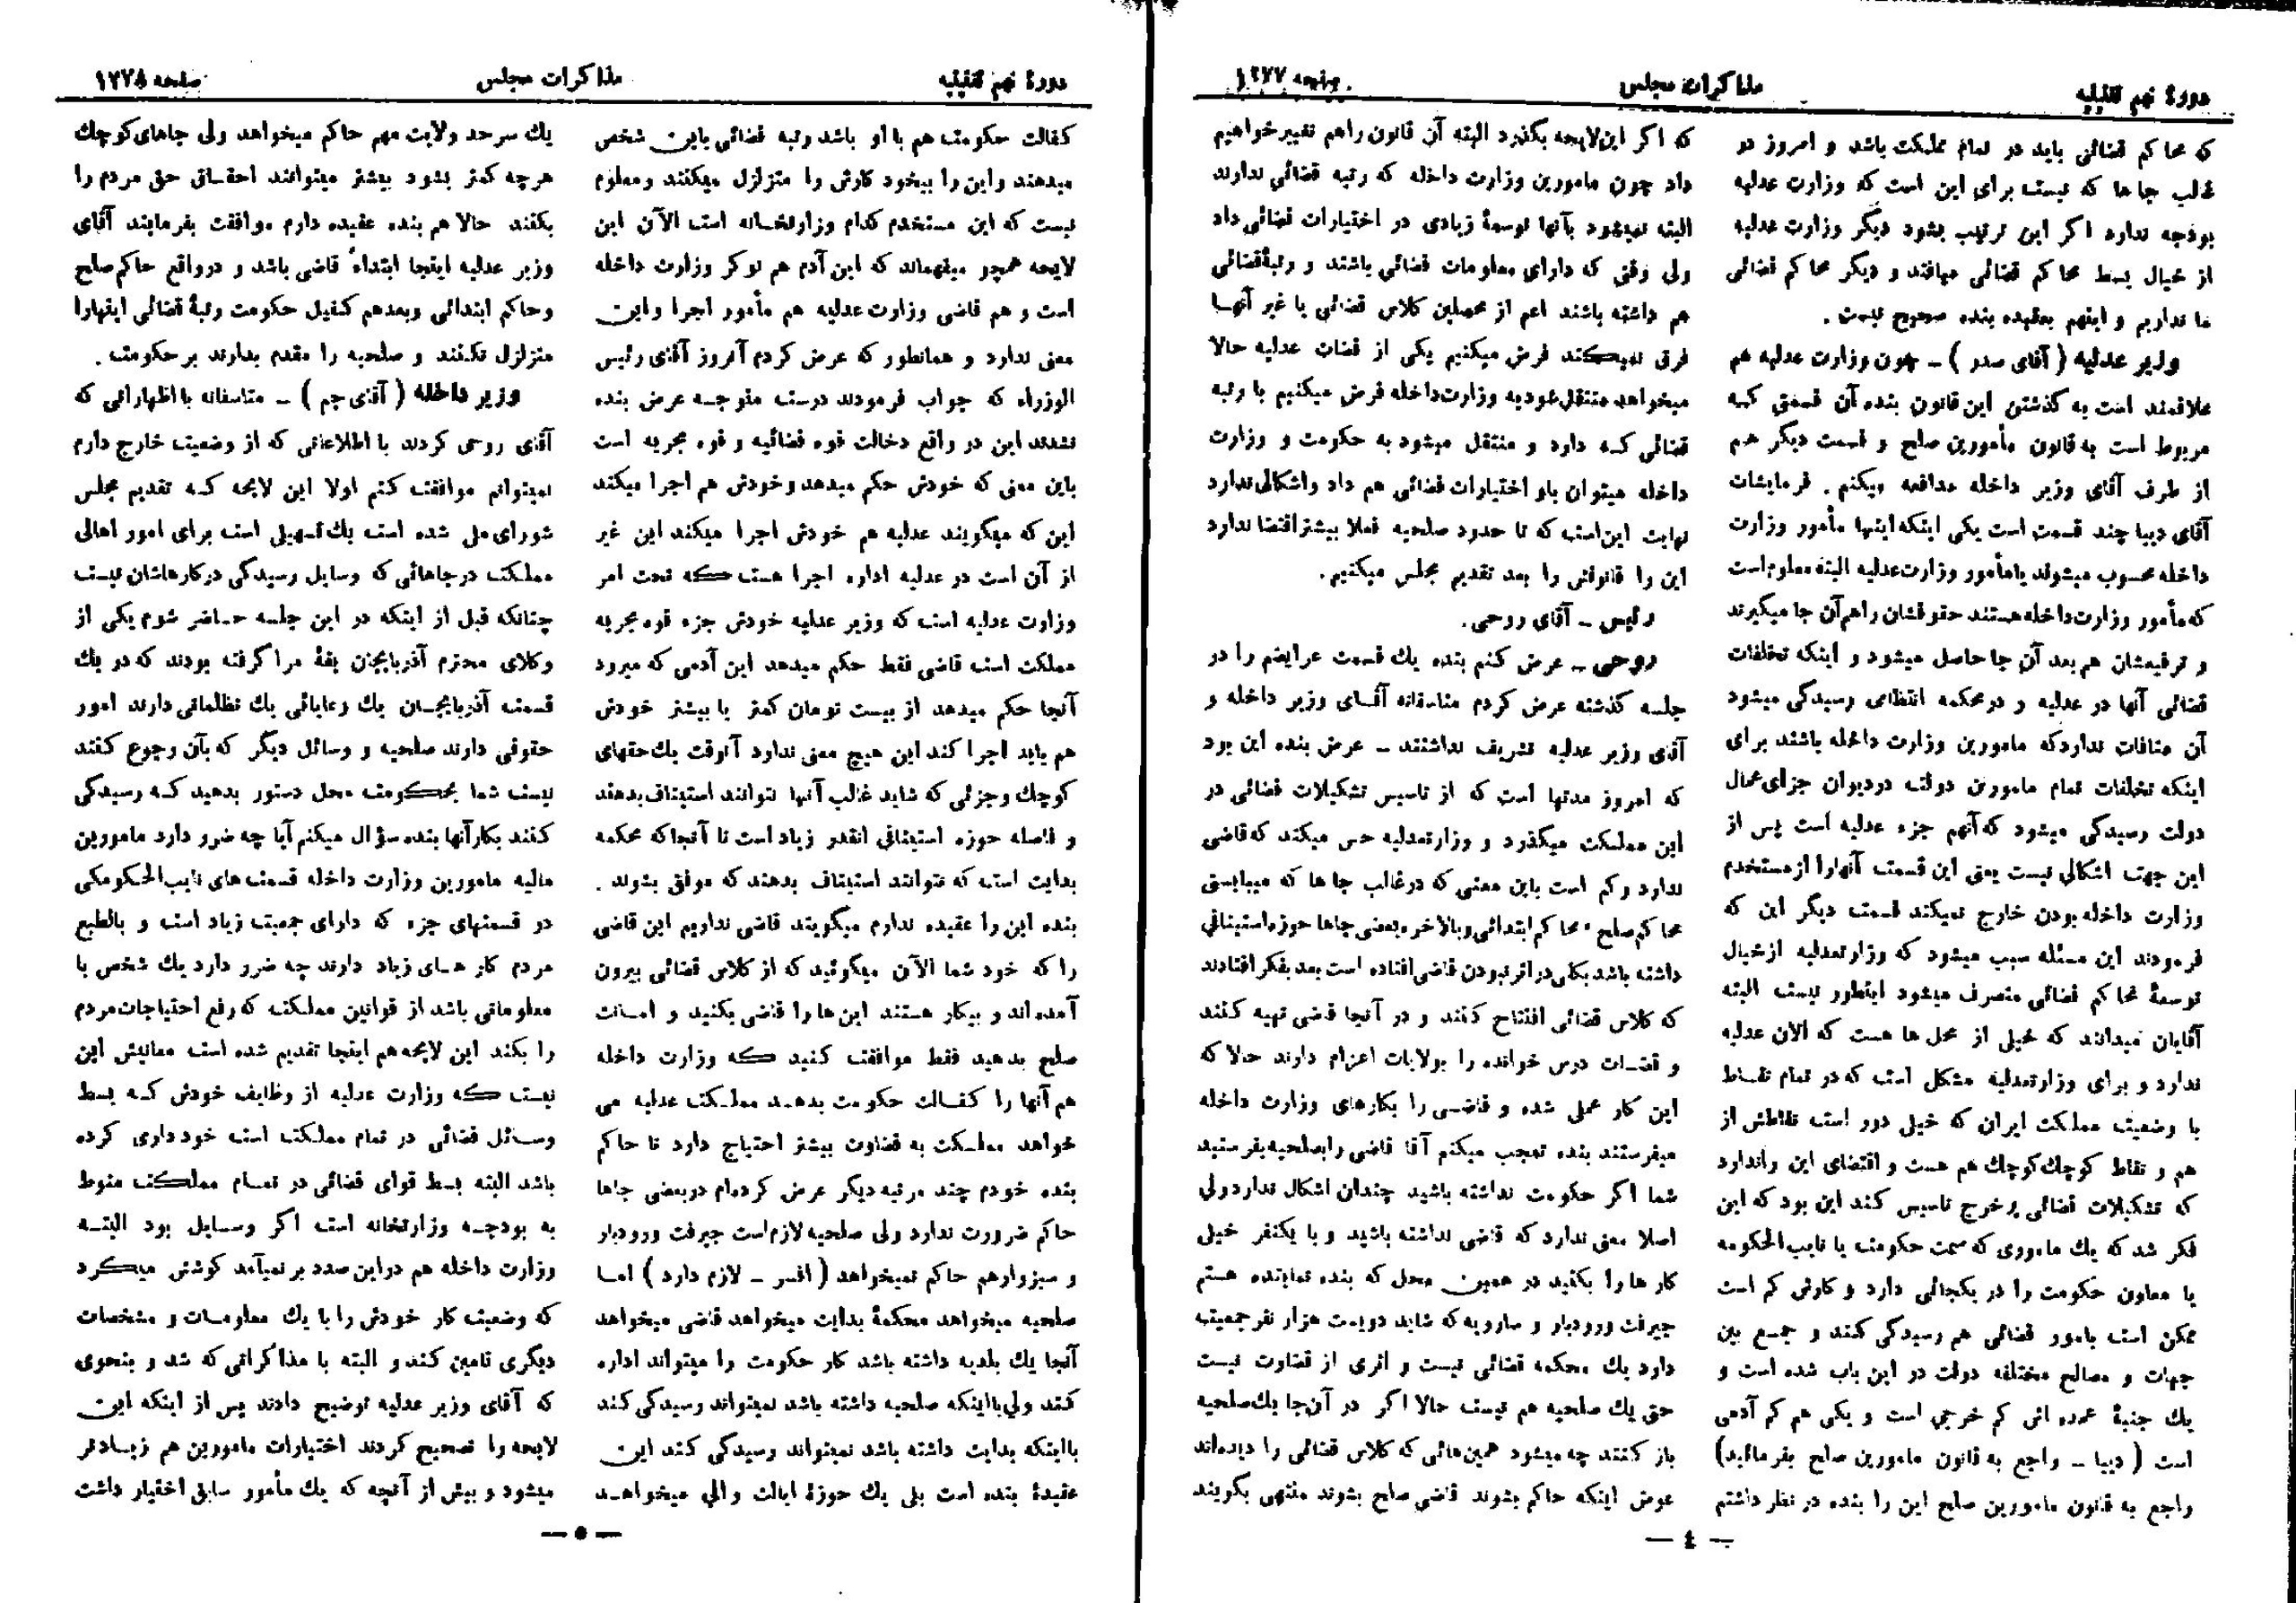 دورهٔ نهم تقنینیه
مذاکرات مجلس
صفحه ۱۲۷۷
که محاکم قضائی باید در تمام مملکت باشد و امروز در
غالب جاها که نیست برای این است که وزارت عدلیه
بودجه ندارد اگر این ترتیب بشود دیگر وزارت عدلیه
از خیال بسط محاکم قضائی میافتد و دیگر محاکم قضائی
ما نداریم و اینهم بعقیده بنده صحیح نیست .
وزیر عدلیه ( آقای صدر ) ـ چون وزارت عدلیه هم
علاقمند است به گذشتن این قانون بنده آن قسمتی که
مربوط است به قانون مأمورین صلح و قسمت دیگر هم
از طرف آقای وزیر داخله مدافعه میکنم . فرمایشات
آقای دیبا چند قسمت است یکی اینکه اینها مأمور وزارت
داخله محسوب میشوند یا مأمور وزارت عدلیه البته معلوم است
که مأمور وزارت داخله هستند حقوقشان را هم آن جا میگیرند
و ترفیعشان هم بعد آن جا حاصل میشود و اینکه تخلفات
قضائی آنها در عدلیه و در محکمه انتظامی رسیدگی میشود
آن منافات ندارد که مامورین وزارت داخله باشند برای
اینکه تخلفات تمام مامورین دولت در دیوان جزای عمال
دولت رسیدگی میشود که آنهم جزء عدلیه است پس از
این جهت اشکالی نیست یعنی این قسمت آنها را از مستخدم
وزارت داخله بودن خارج نمیکند قسمت دیگر این که
فرمودند این مسئله سبب میشود که وزارتعدلیه از خیال
توسعهٔ محاکم قضائی منصرف میشود اینطور نیست البته
آقایان میدانند که خیلی از محل ها هست که الان عدلیه
ندارد و برای وزارتعدلیه مشکل است که در تمام نقاط
با وضعیت مملکت ایران که خیلی دور است نقاطش از
هم و نقاط کوچك کوچك هم هست و اقتضای این را ندارد
که تشکیلات قضائی پر خرج تاسیس کند این بود که این
فکر شد که یك ماموری که سمت حکومت یا نایب الحکومه
یا معاون حکومت را در یکجائی دارد و کارش کم است
ممکن است بامور قضائی هم رسیدگی کند و جمع بین
جهات و مصالح مختلفه دولت در این باب شده است و
یك جنبهٔ عمده اش کم خرجی است و یکی هم کم آدمی
است ( دیبا ـ راجع به قانون مامورین صلح بفرمائید)
راجع به قانون مامورین صلح این را بنده در نظر داشتم
که اگر این لایحه بگذرد البته آن قانون را هم تغییر خواهیم
داد چون مامورین وزارت داخله که رتبه قضائی ندارند
البته نمیشود بآنها توسعهٔ زیادی در اختیارات قضائی داد
ولی وقتی که دارای معلومات قضائی باشند و رتبهٔ قضائی
هم داشته باشند اعم از محصلین کلاس قضائی یا غیر آنها
فرق نمیکند فرض میکنیم یکی از قضات عدلیه حالا
میخواهد منتقل شود به وزارت داخله فرض میکنیم با رتبه
قضائی که دارد و منتقل میشود به حکومت و وزارت
داخله میتوان باو اختیارات قضائی هم داد و اشکالی ندارد
نهایت این است که تا حدود صلحیه فعلا بیشتر اقتضا ندارد
این را قانونش را بعد تقدیم مجلس میکنیم.
رئیس ـ آقای روحی.
روحی ـ عرض کنم بنده یك قسمت عرایضم را در
جلسه گذشته عرض کردم متاسفانه آقای وزیر داخله و
آقای وزیر عدلیه تشریف نداشتند ـ عرض بنده این بود
که امروز مدتها است که از تاسیس تشکیلات قضائی در
این مملکت میگذرد و وزارتعدلیه حس میکند که قاضی
ندارد و کم است باین معنی که در غالب جا ها که میبایستی
محاکم صلح و محاکم ابتدائی و بالاخره بعضی جاها حوزه استینافی
داشته باشد بکلی در اثر نبودن قاضی افتاده است بعد بفکر افتادند
که کلاس قضائی افتتاح کنند و در آنجا قاضی تهیه کنند
و قضات درس خوانده را بولایات اعزام دارند حالا که
این کار عملی شده و قاضی را بکارهای وزارت داخله
میفرستند بنده تعجب میکنم آقا قاضی را بصلحیه بفرستید
شما اگر حکومت نداشته باشید چندان اشکال ندارد ولی
اصلا معنی ندارد که قاضی نداشته باشید و با یکنفر خیلی
کار ها را بکنید در همین محل که بنده نماینده هستم
جیرفت و رودبار و ساردویه که شاید دویست هزار نفر جمعیت
دارد یك محکمه قضائی نیست و اثری از قضاوت نیست
حتی یك صلحیه هم نیست حالا اگر در آن جا یك صلحیه
باز کنند چه میشود همین هائی که کلاس قضائی را دیده‌اند
عوض اینکه حاکم بشوند قاضی صلح بشوند منتهی بگویند
ـ ٤ ـ
دورهٔ نهم تقنینیه
مذاکرات مجلس
صفحه ۱۲۷۸
کفالت حکومت هم با او باشد رتبه قضائی باین شخص
میدهند و این را بیخود کارش را متزلزل میکنند و معلوم
نیست که این مستخدم کدام وزارتخانه است الآن این
لایحه همچو میفهماند که این آدم هم نوکر وزارت داخله
است و هم قاضی وزارت عدلیه هم مأمور اجرا و این
معنی ندارد و همانطور که عرض کردم آنروز آقای رئیس
الوزراء که جواب فرمودند درست متوجه عرض بنده
نشدند این در واقع دخالت قوه قضائیه و قوه مجریه است
باین معنی که خودش حکم میدهد و خودش هم اجرا میکند
این که میگویند عدلیه هم خودش اجرا میکند این غیر
از آن است در عدلیه اداره اجرا هست که تحت امر
وزارت عدلیه است که وزیر عدلیه خودش جزء قوه مجریه
مملکت است قاضی فقط حکم میدهد این آدمی که میرود
آنجا حکم میدهد از بیست تومان کمتر یا بیشتر خودش
هم باید اجرا کند این هیچ معنی ندارد آنوقت یك حقهای
کوچك و جزئی که شاید غالب آنها نتوانند استیناف بدهند
و فاصله حوزه استینافی انقدر زیاد است تا آنجا که محکمه
بدایت است که نتوانند استیناف بدهند که موفق بشوند .
بنده این را عقیده ندارم میگویند قاضی نداریم این قاضی
را که خود شما الآن میگوئید که از کلاس قضائی بیرون
آمده‌اند و بیکار هستند این ها را قاضی بکنید و امانت
صلح بدهید فقط موافقت کنید که وزارت داخله
هم آنها را کفالت حکومت بدهد مملکت عدلیه می
خواهد مملکت به قضاوت بیشتر احتیاج دارد تا حاکم
بنده خودم چند مرتبه دیگر عرض کرده‌ام در بعضی جاها
حاکم ضرورت ندارد ولی صلحیه لازم است جیرفت و رودبار
و سبزوار هم حاکم نمیخواهد ( افسر ـ لازم دارد ) اما
صلحیه میخواهد محکمهٔ بدایت میخواهد قاضی میخواهد
آنجا یك بلدیه داشته باشد کار حکومت را میتواند اداره
کند ولی بااینکه صلحیه داشته باشد نمیتواند رسیدگی کند
بااینکه بدایت داشته باشد نمیتواند رسیدگی کند این
عقیدهٔ بنده است بلی یك حوزهٔ ایالت والی میخواهد
یك سرحد ولایت مهم حاکم میخواهد ولی جاهای کوچك
هرچه کمتر بشود بیشتر میتوانند احقاق حق مردم را
بکنند حالا هم بنده عقیده دارم موافقت بفرمایند آقای
وزیر عدلیه اینجا ابتداءً قاضی باشد و در واقع حاکم صلح
و حاکم ابتدائی و بعد هم کفیل حکومت رتبهٔ قضائی اینها را
متزلزل نکنند و صلحیه را مقدم بدارند بر حکومت .
وزیر داخله ( آقای جم ) ـ متاسفانه با اظهاراتی که
آقای روحی کردند با اطلاعاتی که از وضعیت خارج دارم
نمیتوانم موافقت کنم اولا این لایحه که تقدیم مجلس
شورای ملی شده است یك تسهیلی است برای امور اهالی
مملکت در جاهائی که وسایل رسیدگی در کارهاشان نیست
چنانکه قبل از اینکه در این جلسه حاضر شوم یکی از
وکلای محترم آذربایجان یقهٔ مرا گرفته بودند که در یك
قسمت آذربایجان یك رعایائی یك تظلماتی دارند امور
حقوقی دارند صلحیه و وسائل دیگر که بآن رجوع کنند
نیست شما بحکومت محل دستور بدهید که رسیدگی
کنند بکار آنها بنده سؤال میکنم آیا چه ضرر دارد مامورین
مالیه مامورین وزارت داخله قسمت های نایب الحکومگی
در قسمتهای جزء که دارای جمعیت زیاد است و بالطبع
مردم کار های زیاد دارند چه ضرر دارد یك شخص با
معلوماتی باشد از قوانین مملکت که رفع احتیاجات مردم
را بکند این لایحه هم اینجا تقدیم شده است معانیش این
نیست که وزارت عدلیه از وظایف خودش که بسط
وسائل قضائی در تمام مملکت است خود داری کرده
باشد البته بسط قوای قضائی در تمام مملکت منوط
به بودجه وزارتخانه است اگر وسایل بود البته
وزارت داخله هم در این صدد بر نمیآمد کوشش میکرد
که وضعیت کار خودش را با یك معلومات و مشخصات
دیگری تامین کند و البته با مذاکراتی که شد و بنحوی
که آقای وزیر عدلیه توضیح دادند پس از اینکه این
لایحه را تصحیح کردند اختیارات مامورین هم زیادتر
میشود و بیش از آنچه که یك مأمور سابق اختیار داشت
ـ ٥ ـ